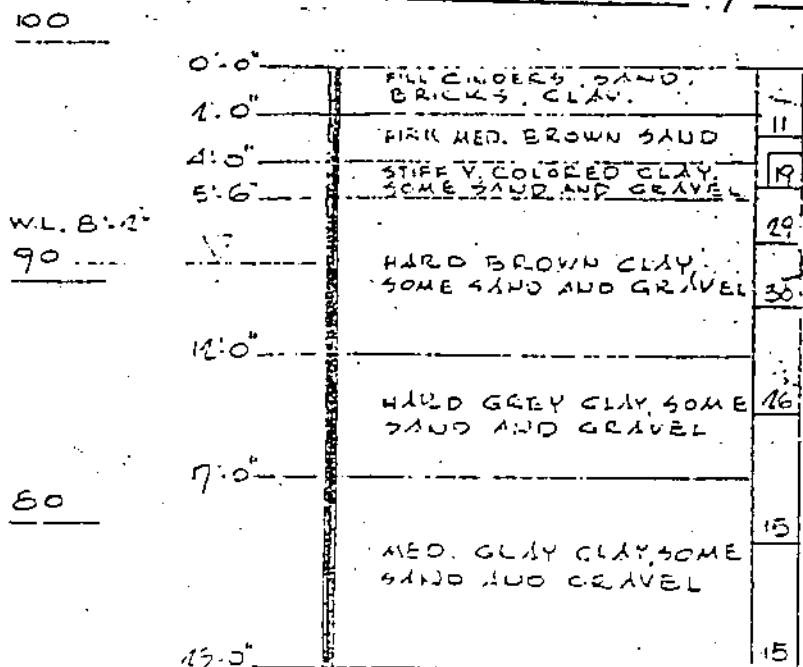 100
0'-0"
FILL CINDERS, SAND,
BRICKS, CLAY.
2'-0"
11
FIRM MED. BROWN SAND
4'-0"
STIFF V. COLORED CLAY,
SOME SAND AND GRAVEL
19
5'-6"
W.L. 8'-2"
29
90
HARD BROWN CLAY,
SOME SAND AND GRAVEL
30
12'-0"
HARD GREY CLAY, SOME
SAND AND GRAVEL
26
7'-0"
80
15
MED. GRAY CLAY, SOME
SAND AND GRAVEL
25'-0"
15